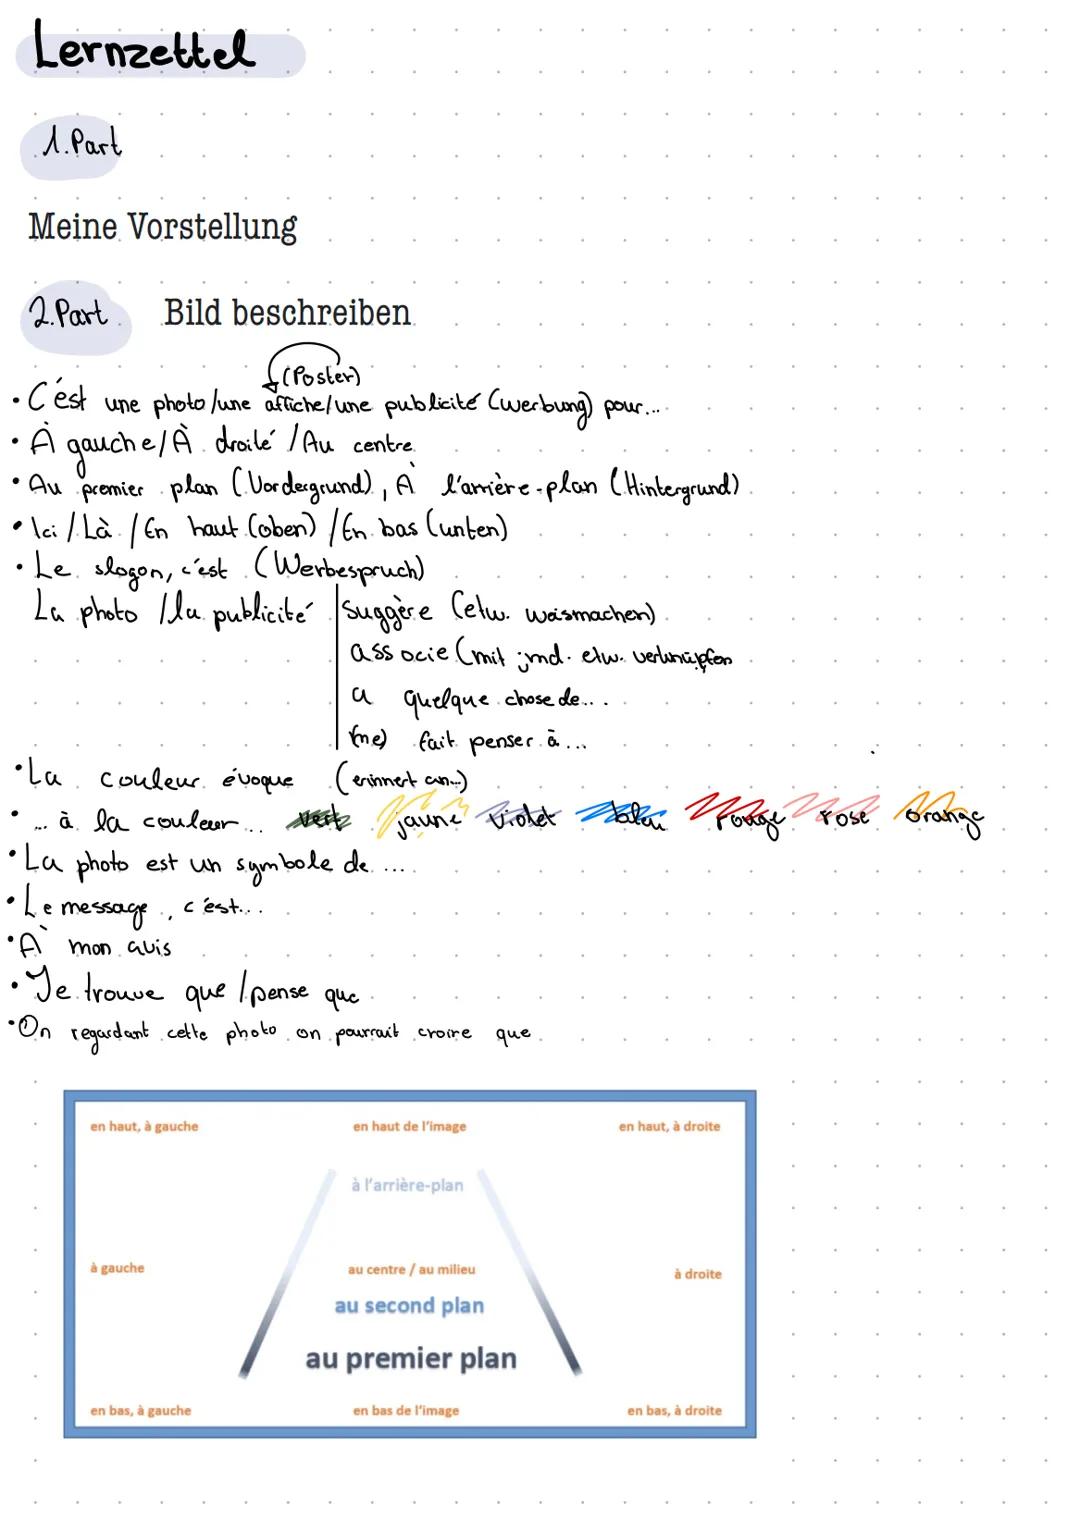 Lernzettel
1. Part
Meine Vorstellung
2. Part Bild beschreiben
(Poster)
• C'ést une photo/une affiche/une publicité (Werbung) pour...
• À gauche/À droité /Au centre
• Au premier plan (Vordergrund), À l'arrière-plan (Hintergrund)
• Ici / Là / En haut (oben) / En bas (unten)
• Le slogan, c'est (Werbespruch)
La photo /la publicité suggère (etw. weismachen)
associe (mit jmd. etw. verknüpfen
a quelque chose de...
(me) fait penser à...
• La couleur évoque (erinnert an...)
• ... à la couleur... vert jaune violet bleu rouge rose orange
• La photo est un symbole de ...
• Le message, c'ést...
• À mon avis
• Je trouve que /pense que
• On regardant cette photo on pourrait croire que
en haut, à gauche en haut de l'image en haut, à droite
à l'arrière-plan
à gauche au centre / au milieu à droite
au second plan
au premier plan
en bas, à gauche en bas de l'image en bas, à droite